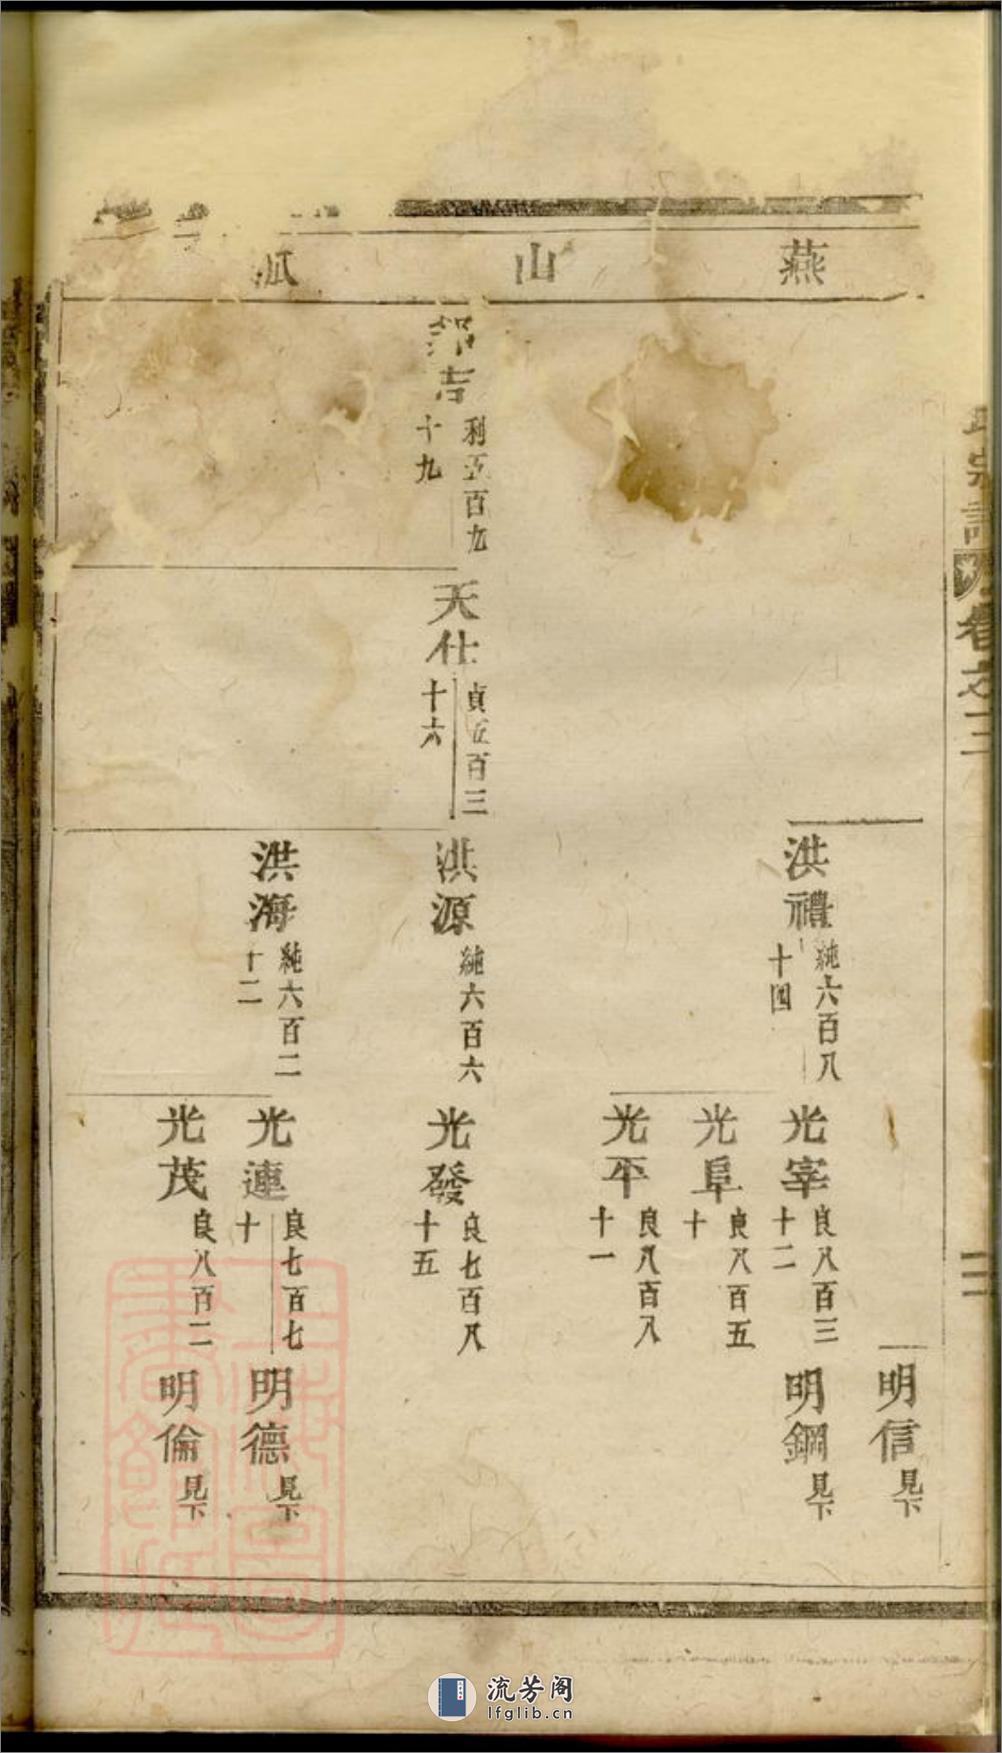 燕山派
宗譜
卷之三
明信 見下
洪禮 純六百八十四
光宰 良八百三十二
明鋼 見下
光阜 良八百五十
光平 良八百八十一
吉 利五百九十九
天仕 貞五百三十六
洪源 純六百六
光發 良七百八十五
洪海 純六百二十二
光連 良七百七十
明德 見下
光茂 良八百二
明倫 見下
上海圖書館藏
流芳阁
lfglib.cn